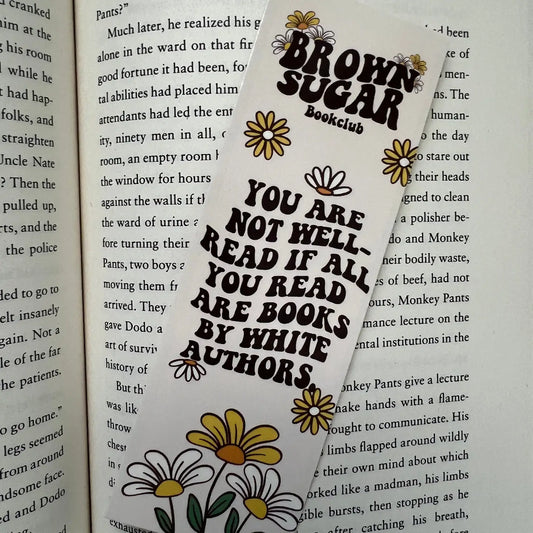 cranked
him at the
g his room
d while he
it had hap-
folks, and
straighten
Uncle Nate
? Then the
pulled up,
rts, and the
the police
ded to go to
elt insanely
gain. Not a
le of the far
the patients.
o go home."
legs seemed
from around
ndsome face.
ed and Dodo
Pants?"
Much later, he realized his go
alone in the ward on that fir
good fortune it had been, for
tal abilities had placed him
attendants had led the ent
ity, ninety men in all,
room, an empty room
the window for hours
against the walls if th
the ward of urine
fore turning their
Pants, two boys
moving them fr
arrived. They
gave Dodo a
art of surviv
history of
But th
was lik
throw
chest
in
exhausted
BROWN
SUGAR
Bookclub
YOU ARE
NOT WELL-
READ IF ALL
YOU READ
ARE BOOKS
BY WHITE
AUTHORS.
been
ke of
men-
ns. The
human-
o the day
o stare out
g their heads
gned to clean
a polisher be-
do and Monkey
heir bodily waste,
es of beef, had not
ours, Monkey Pants
mance lecture on the
ental institutions in the
onkey Pants give a lecture
make hands with a flame-
ought to communicate. His
limbs flapped around wildly
their own mind about which
orked like a madman, his limbs
gible bursts, then stopping as he
after catching his breath,